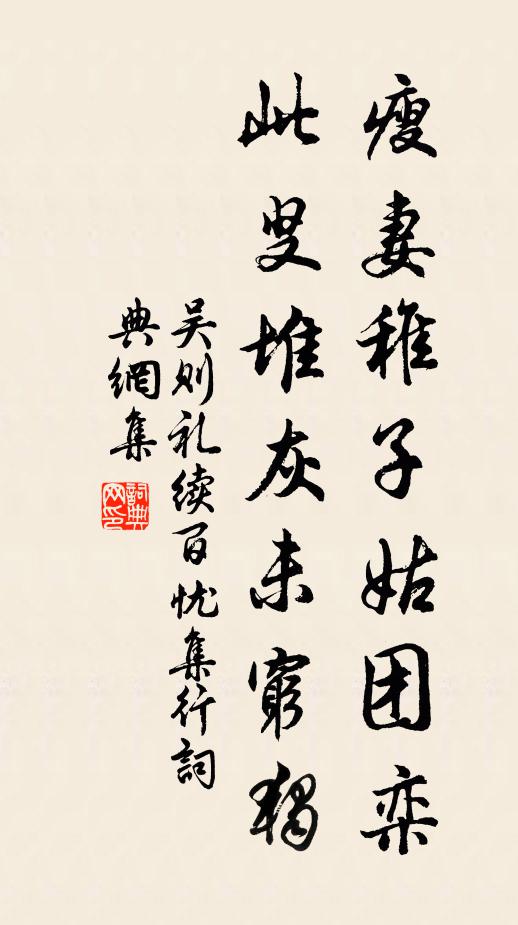 瘦妻稚子姑团栾
此叟堆灰未穷独
吴则礼续百忧集行词
典網集
詞典
网印